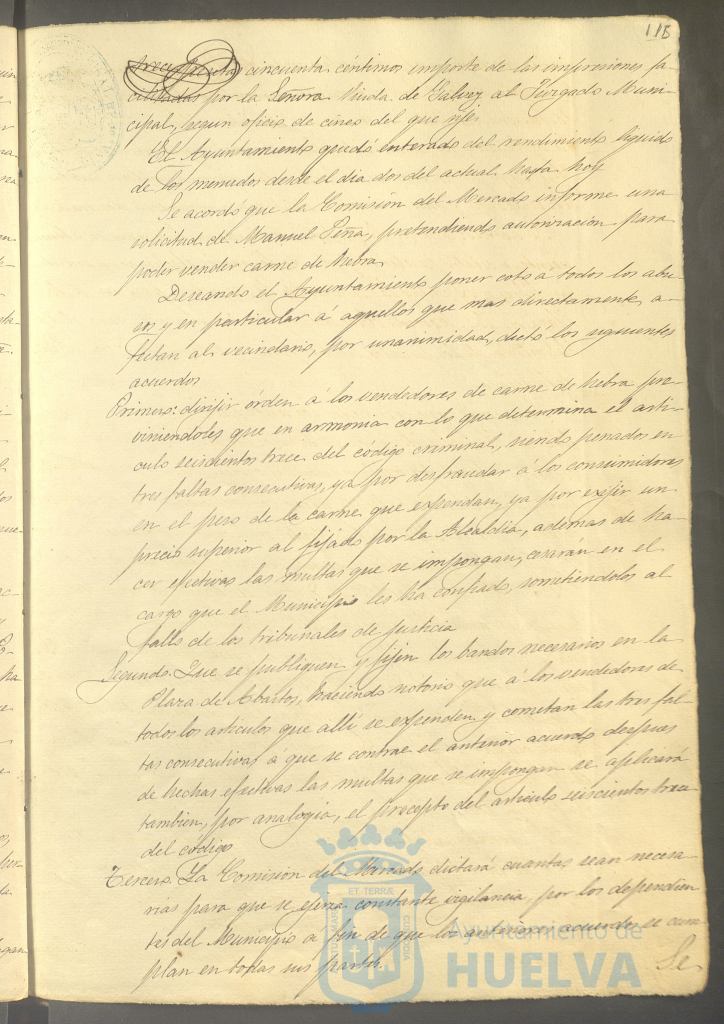 118
trece pesetas cincuenta céntimos importe de las impresiones fa-
cilitadas por la Señora Viuda de Galvez al Juzgado Muni-
cipal, segun oficio de cinco del que rije
El Ayuntamiento quedó enterado del rendimiento liquido
de los menudos desde el dia dos del actual hasta hoy
Se acordó que la Comisión del Mercado informe una
solicitud de Manuel Peña, pretendiendo autorizacion para
poder vender carne de hebra
Deseando el Ayuntamiento poner coto á todos los abu-
sos y en particular á aquellos que mas directamente a-
fectan al vecindario, por unanimidad, dictó los siguientes
acuerdos
Primero: dirijir orden á los vendedores de carne de hebra pre-
viniendoles que en armonia con lo que determina el arti-
culo seiscientos trece del codigo criminal, siendo penados en
tres faltas consecutivas, ya por desfraudar á los consumidores
en el peso de la carne que expendan, ya por exijir un
precio superior al fijado por la Alcaldia, ademas de ha-
cer efectivas las multas que se impongan, cesarán en el
cargo que el Municipio les ha confiado, sometiéndolos al
fallo de los tribunales de justicia
Segundo. Que se publiquen y fijen los bandos necesarios en la
Plaza de Abastos, haciendo notorio que á los vendedores de
todos los articulos que alli se expenden y cometan las tres fal-
tas consecutivas á que se contrae el anterior acuerdo despues
de hechas efectivas las multas que se impongan se aplicará
tambien, por analogia, el precepto del articulo seiscientos trece
del codigo
Tercero. La Comision del Mercado dictará cuantas sean necesa-
rias para que se ejerza constante vigilancia, por los dependien
tes del Municipio á fin de que los anteriores acuerdos se cum
plan en todas sus partes.
Se
ET TERRÆ
Ayuntamiento de
HUELVA